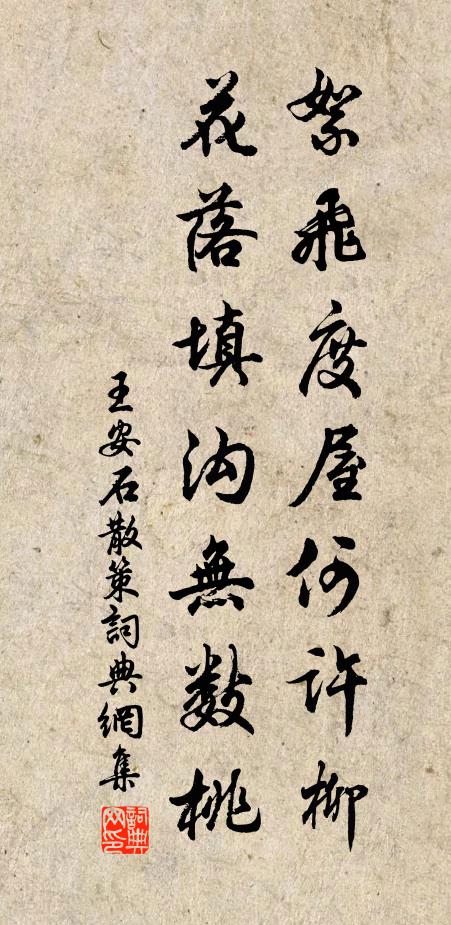 絮飛度屋何許柳
花落填沟無数桃
王安石散策詞典網集
詞典网印